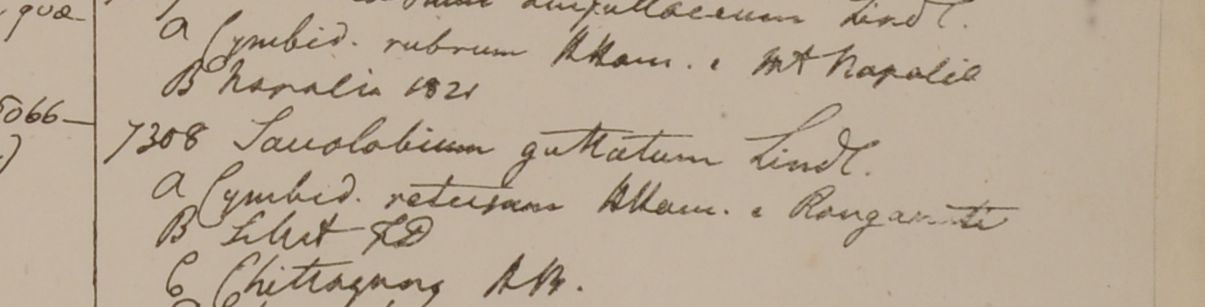 quæ
ampullaceum Lindl.
A Cymbid. rubrum HHam. e Mt Napalie
B Napalia 1821
5066—
7308 Saccolobium guttatum Lindl.
A Cymbid. retusum HHam. e Rangamati
B Silhet FD
C Chittagong